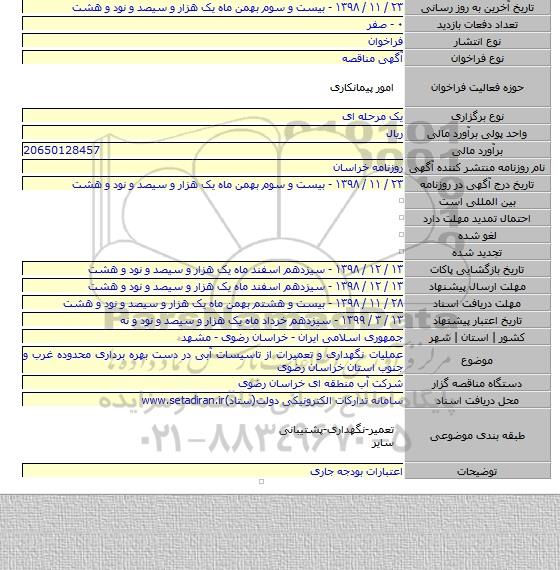 تاریخ آخرین به روز رسانی ۲۳ / ۱۱ / ۱۳۹۸ - بیست و سوم بهمن ماه یک هزار و سیصد و نود و هشت
تعداد دفعات بازدید ۰ - صفر
نوع انتشار فراخوان
نوع فراخوان آگهی مناقصه
حوزه فعالیت فراخوان امور پیمانکاری
نوع برگزاری یک مرحله ای
واحد پولی برآورد مالی ریال
برآورد مالی 20650128457
نام روزنامه منتشر کننده آگهی روزنامه خراسان
تاریخ درج آگهی در روزنامه ۲۳ / ۱۱ / ۱۳۹۸ - بیست و سوم بهمن ماه یک هزار و سیصد و نود و هشت
بین المللی است
احتمال تمدید مهلت دارد
لغو شده
تجدید شده
تاریخ بازگشایی پاکات ۱۳ / ۱۲ / ۱۳۹۸ - سیزدهم اسفند ماه یک هزار و سیصد و نود و هشت
مهلت ارسال پیشنهاد ۱۳ / ۱۲ / ۱۳۹۸ - سیزدهم اسفند ماه یک هزار و سیصد و نود و هشت
مهلت دریافت اسناد ۲۸ / ۱۱ / ۱۳۹۸ - بیست و هشتم بهمن ماه یک هزار و سیصد و نود و هشت
تاریخ اعتبار پیشنهاد ۱۳ / ۳ / ۱۳۹۹ - سیزدهم خرداد ماه یک هزار و سیصد و نود و نه
کشور | استان | شهر جمهوری اسلامی ایران - خراسان رضوی - مشهد
موضوع عملیات نگهداری و تعمیرات از تاسیسات آبی در دست بهره برداری محدوده غرب و
جنوب استان خراسان رضوی
دستگاه مناقصه گزار شرکت آب منطقه ای خراسان رضوی
محل دریافت اسناد سامانه تدارکات الکترونیکی دولت(ستاد)www.setadiran.ir
طبقه بندی موضوعی تعمیر-نگهداری-پشتیبانی
سایر
توضیحات اعتبارات بودجه جاری
۰۲۱-۸۸۳۴۹۶۷۰-۵